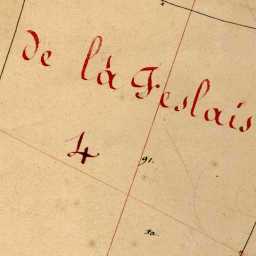 de la Feslais
4
91.